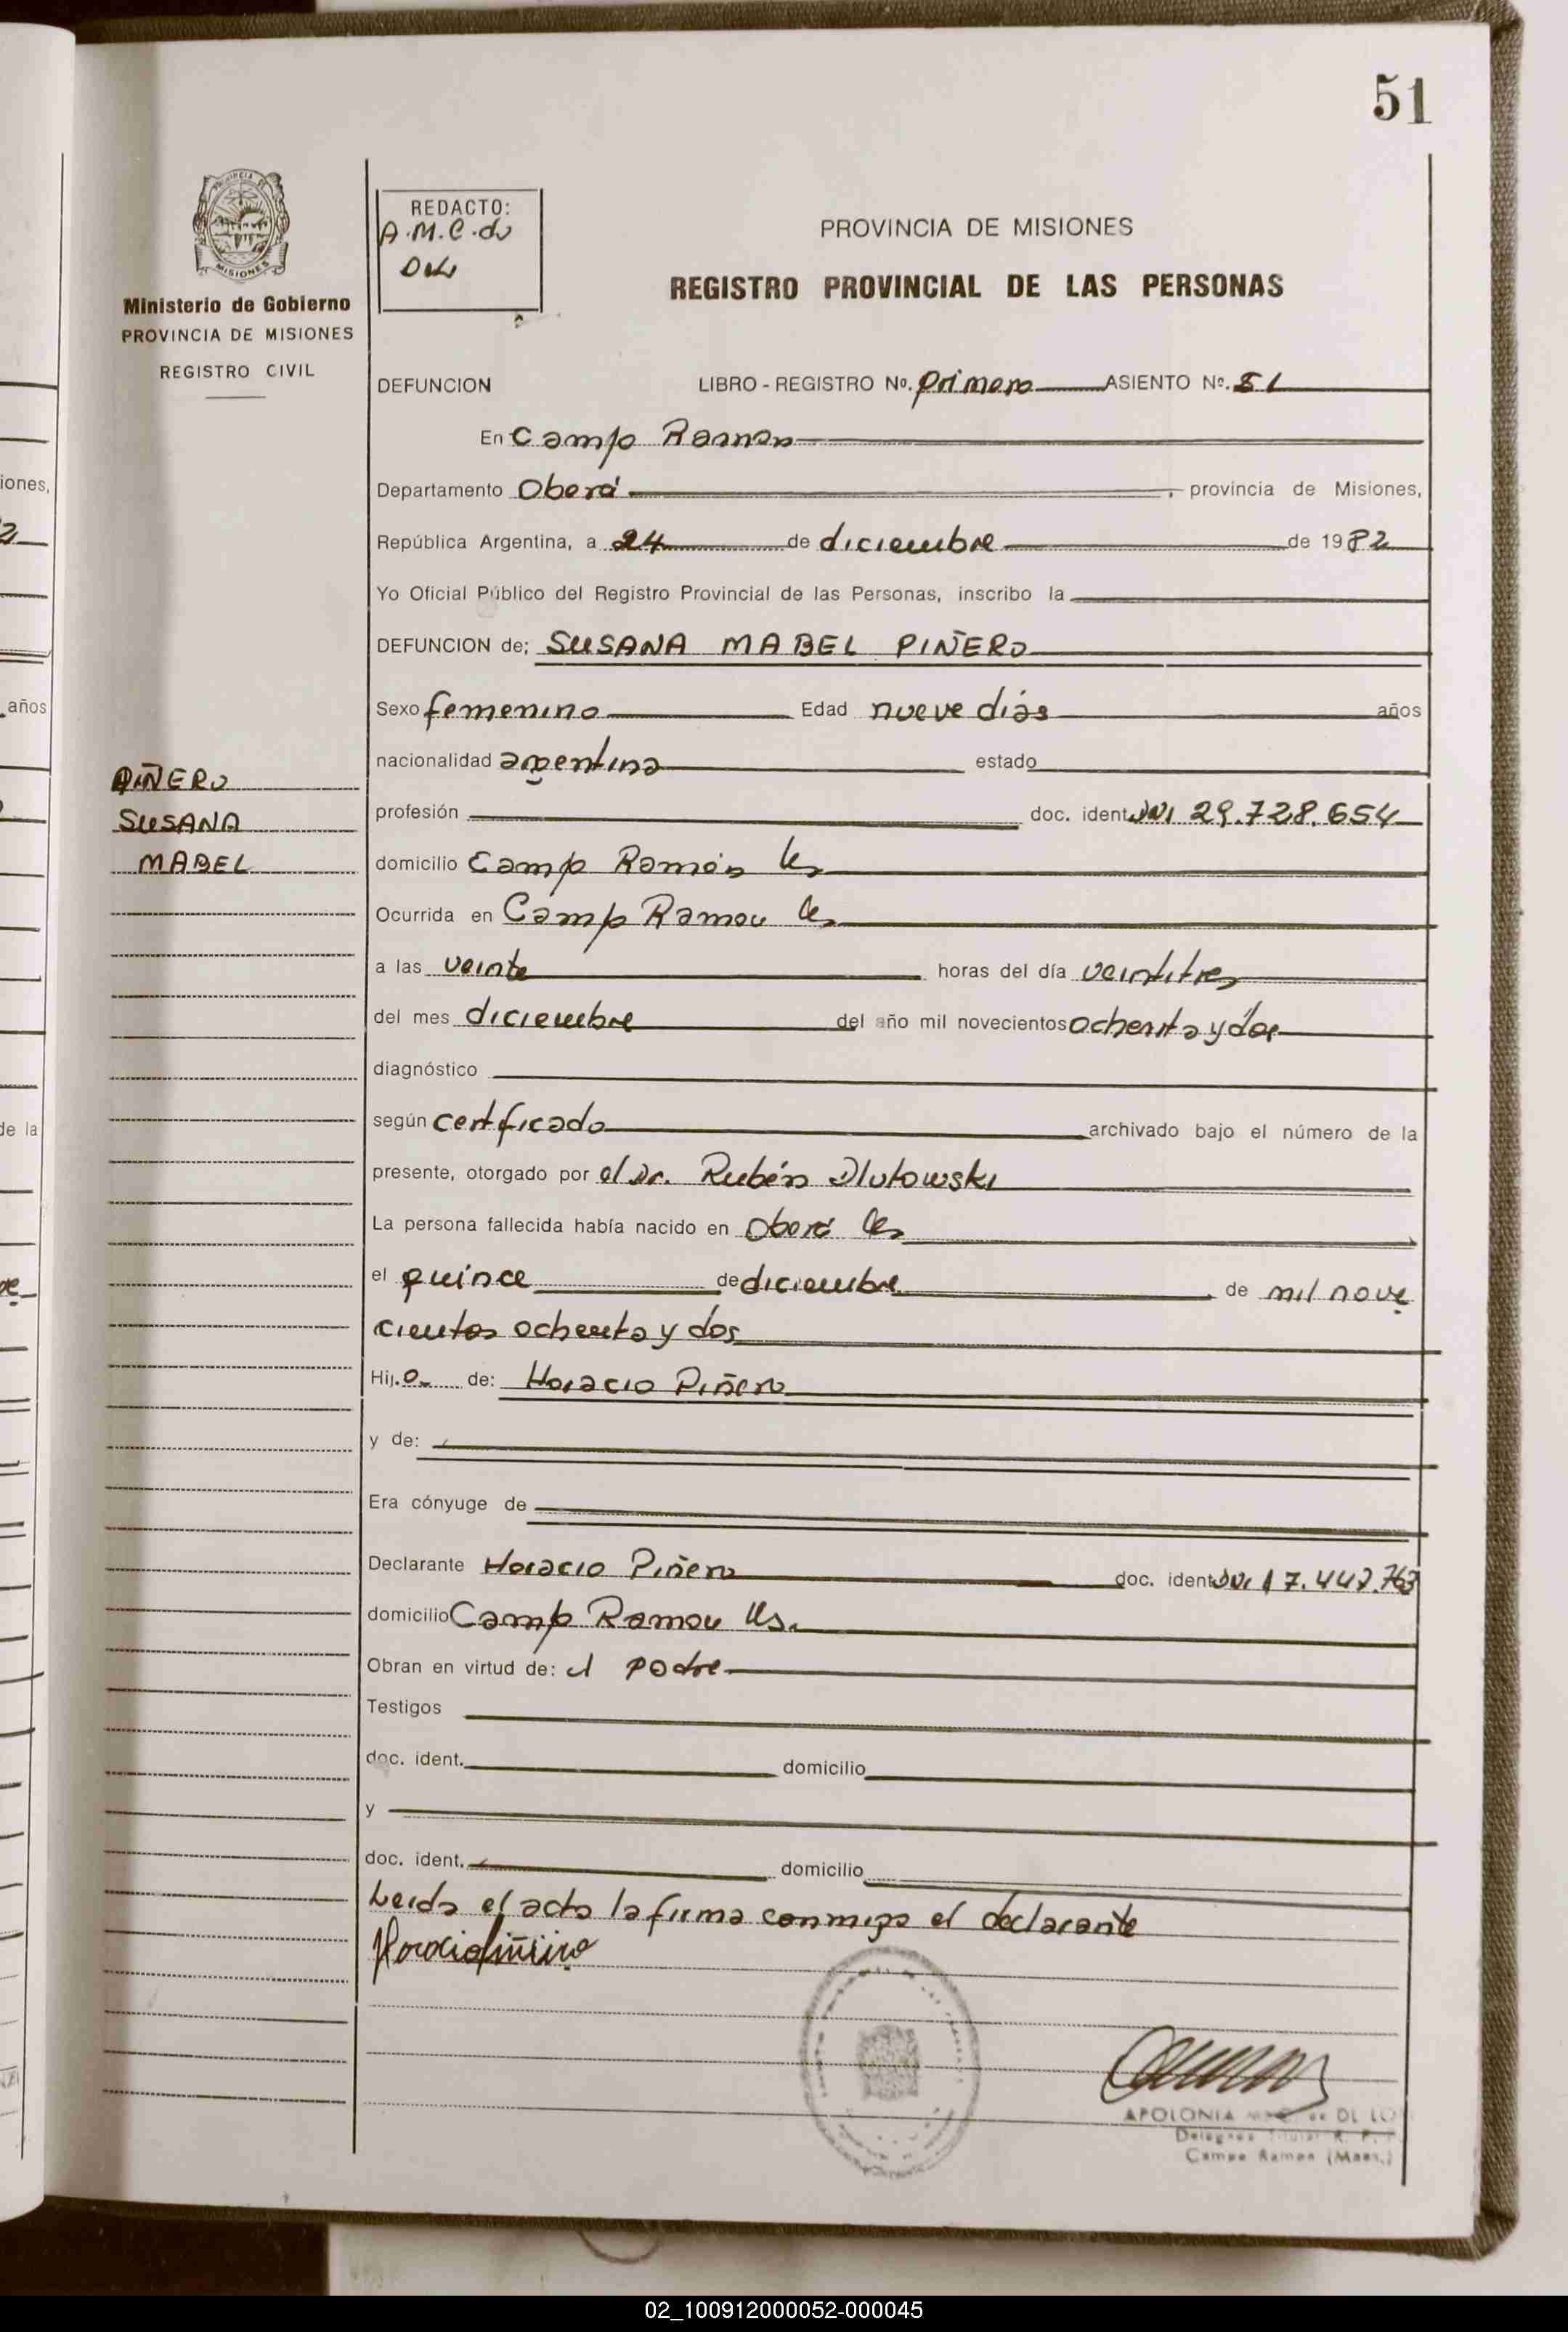 51
PROVINCIA DE
MISIONES
Ministerio de Gobierno
PROVINCIA DE MISIONES
REGISTRO CIVIL
REDACTO:
A.M.C. de
PROVINCIA DE MISIONES
REGISTRO PROVINCIAL DE LAS PERSONAS
DEFUNCION LIBRO - REGISTRO Nº. primero ASIENTO Nº. 51
En Campo Ramon
Departamento Oberá , provincia de Misiones,
República Argentina, a 24 de diciembre de 1982
Yo Oficial Público del Registro Provincial de las Personas, inscribo la
DEFUNCION de; SUSANA MABEL PIÑERO
Sexo femenino Edad nueve días años
nacionalidad argentina estado
PIÑERO
SUSANA
MABEL
profesión doc. ident. DNI 29.728.654
domicilio Campo Ramón
Ocurrida en Campo Ramon
a las veinte horas del día veintitres
del mes diciembre del año mil novecientos ochenta y dos
diagnóstico
según certificado archivado bajo el número de la
presente, otorgado por el Dr. Rubén Dlutowski
La persona fallecida había nacido en Oberá
el quince de diciembre de mil nove
cientos ochenta y dos
Hij.a de: Horacio Piñero
y de:
Era cónyuge de
Declarante Horacio Piñero doc. ident. DNI
domicilio Campo Ramon Ms.
Obran en virtud de: el padre
Testigos
doc. ident. domicilio
y
doc. ident. domicilio
Leida el acta la firma conmigo el declarante
Horacio Piñero
APOLONIA DE LO
Delegada Titular R. P.
Campo Ramon (Mnes.)
iones,
años
de la
02_100912000052-000045